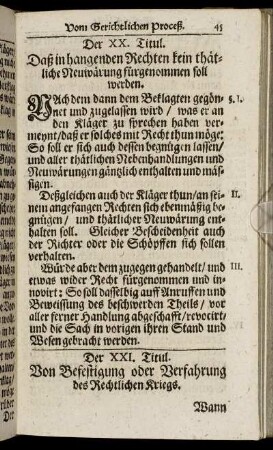 Vom Gerichtlichen Proceß. 45
Der XX. Titul.
Daß in hangenden Rechten kein thät-
liche Neuwärung fürgenommen soll
werden.
NAch dem dann dem Beklagten gegön- §. I.
net und zugelassen wird / was er an
den Kläger zu sprechen haben ver-
meynt / daß er solches mit Recht thun möge:
So soll er sich auch dessen begnügen lassen /
und aller thätlichen Nebenhandlungen und
Neuwärungen gäntzlich enthalten und mäs-
sigen.
Deßgleichen auch der Kläger thun / an sei- II.
nem angefangen Rechten sich ebenmäßig be-
gnügen / und thätlicher Neuwärung ent-
halten soll. Gleicher Bescheidenheit auch
der Richter oder die Schöpffen sich sollen
verhalten.
Würde aber dem zugegen gehandelt / und III.
etwas wider Recht fürgenommen und in-
novirt: So soll dasselbig auff Anruffen und
Beweissung des beschwerden Theils / vor
aller ferner Handlung abgeschafft / revocirt /
und die Sach in vorigen ihren Stand und
Wesen gebracht werden.
Der XXI. Titul.
Von Befestigung oder Verfahrung
des Rechtlichen Kriegs.
Wann